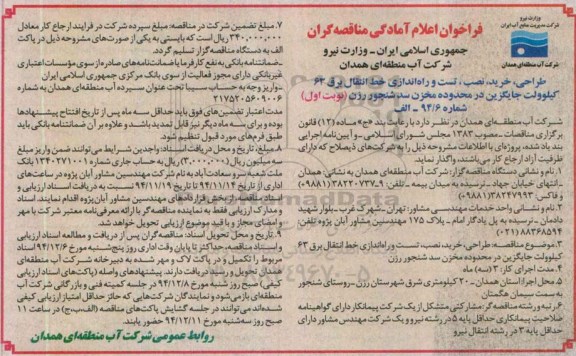 وزارت نیرو
شرکت مدیریت منابع آب ایران
شرکت آب منطقه‌ای همدان
فراخوان اعلام آمادگی مناقصه‌گران
جمهوری اسلامی ایران - وزارت نیرو
شرکت آب منطقه‌ای همدان
طراحی، خرید، نصب، تست و راه‌اندازی خط انتقال برق ۶۳
کیلوولت جایگزین در محدوده مخزن سد شنجور رزن (نوبت اول)
شماره ۹۴/۶ - الف
شرکت آب منطقه‌ای همدان در نظر دارد با رعایت بند «ج» ماده (۱۳) قانون
برگزاری مناقصات - مصوب ۱۳۸۳ مجلس شورای اسلامی - و آیین‌نامه اجرایی
بند یاد شده، پروژه‌ای با اطلاعات مشروحه ذیل را به شرکت‌های ذیصلاح که دارای
ظرفیت آزاد ارجاع کار می‌باشند، واگذار نماید.
۱. نام و نشانی دستگاه مناقصه گزار: شرکت آب منطقه‌ای همدان به نشانی: همدان
- انتهای خیابان جهاد - نرسیده به میدان بیمه - تلفن: ۹-۳۸۲۲۰۷۳۷ (۰۹۸۸۱)
و فاکس: ۳۸۲۴۷۹۹۳ (۰۹۸۸۱)
۲. نام و نشانی واحد خدمات مهندسی مشاور: تهران - شهرک غرب - بلوار شهید
دادمان - نرسیده به پل یادگار امام - پلاک ۱۷۵ مهندسین مشاور آبان پژوه تلفن:
۸۸۳۶۸۵۹۴ (۰۲۱)
۳. موضوع مناقصه: طراحی، خرید، نصب، تست و راه‌اندازی خط انتقال برق ۶۳
کیلوولت جایگزین در محدوده مخزن سد شنجور رزن
۴. مدت اجرای کار: ۳ (سه) ماه
۵. محل اجرا: استان همدان - ۲۰ کیلومتری شرق شهرستان رزن - روستای شنجور
به سمت سیمان هگمتان
۶. رتبه و رشته مناقصه گر: مشارکتی متشکل از یک شرکت پیمانکار دارای گواهینامه
صلاحیت پیمانکاری حداقل پایه ۵ در رشته نیرو و یک شرکت مهندس مشاور دارای
حداقل پایه ۳ در رشته انتقال نیرو
۷. مبلغ تضمین شرکت در مناقصه: مبلغ سپرده شرکت در فرایند ارجاع کار معادل
۳۴۰,۰۰۰,۰۰۰ ریال است که بایستی به یکی از صورت‌های مشروحه ذیل در پاکت
الف به دستگاه مناقصه گزار تسلیم گردد.
- ضمانتنامه بانکی به نفع کارفرما یا ضمانت‌نامه‌های صادره از سوی مؤسسات اعتباری
غیربانکی دارای مجوز فعالیت از سوی بانک مرکزی جمهوری اسلامی ایران
- واریز وجه به حساب سیبا تحت عنوان سپرده آب منطقه‌ای همدان به شماره
۲۱۷۵۲۰۵۶۰۹۰۰۶
مدت اعتبار تضمین‌های فوق باید حداقل سه ماه پس از تاریخ افتتاح پیشنهادها
بوده و برای سه ماه دیگر نیز قابل تمدید باشد و علاوه بر آن ضمانتنامه بانکی باید
طبق فرم‌های مورد قبول تنظیم شود.
۸. مبلغ، تاریخ و محل دریافت اسناد: واجدین شرایط می‌توانند ضمن واریز مبلغ
سه میلیون ریال (۳,۰۰۰,۰۰۰) به حساب جاری شماره ۱۳۴۰۲۷۱۰۰۱ بانک
ملت شعبه سرو سعادت‌آباد به نام شرکت مهندسین مشاور آبان پژوه در ساعت‌های
اداری از تاریخ ۹۴/۱۱/۱۴ تا تاریخ ۹۴/۱۱/۱۹ نسبت به دریافت اسناد ارزیابی و
اسناد مناقصه، از بخش قراردادهای مهندسین مشاور آبان‌پژوه اقدام نمایند. اسناد
و مدارک ارزیابی فقط به نماینده مناقصه‌گر با ارائه معرفی‌نامه معتبر شرکت با مهر
و امضای مجاز و با قید موضوع ارزیابی تحویل خواهد شد.
۹. تاریخ و محل تحویل اسناد: مناقصه گران پس از دریافت و مطالعه اسناد ارزیابی
و اسناد مناقصه، حداکثر تا پایان وقت اداری روز پنج‌شنبه مورخ ۹۴/۱۲/۶ اسناد
مربوط را تکمیل و در پاکت لاک و مهر شده به دبیرخانه شرکت آب منطقه‌ای
همدان تحویل و رسید دریافت دارند. پیشنهادهای واصله (پاکت‌های اسناد ارزیابی
کیفی) صبح روز شنبه مورخ ۹۴/۱۲/۸ در جلسه کمیته فنی و بازرگانی شرکت آب
منطقه‌ای باز می‌شود و نمایندگان شرکت‌هایی که حائز حداقل امتیاز ارزیابی کیفی
شده‌اند می‌توانند در جلسه گشایش پاکت‌های مناقصه (الف،ب،ج) در ساعت ۱۱
صبح روز سه‌شنبه مورخ ۹۴/۱۲/۱۱ حضور یابند.
روابط عمومی شرکت آب منطقه‌ای همدان